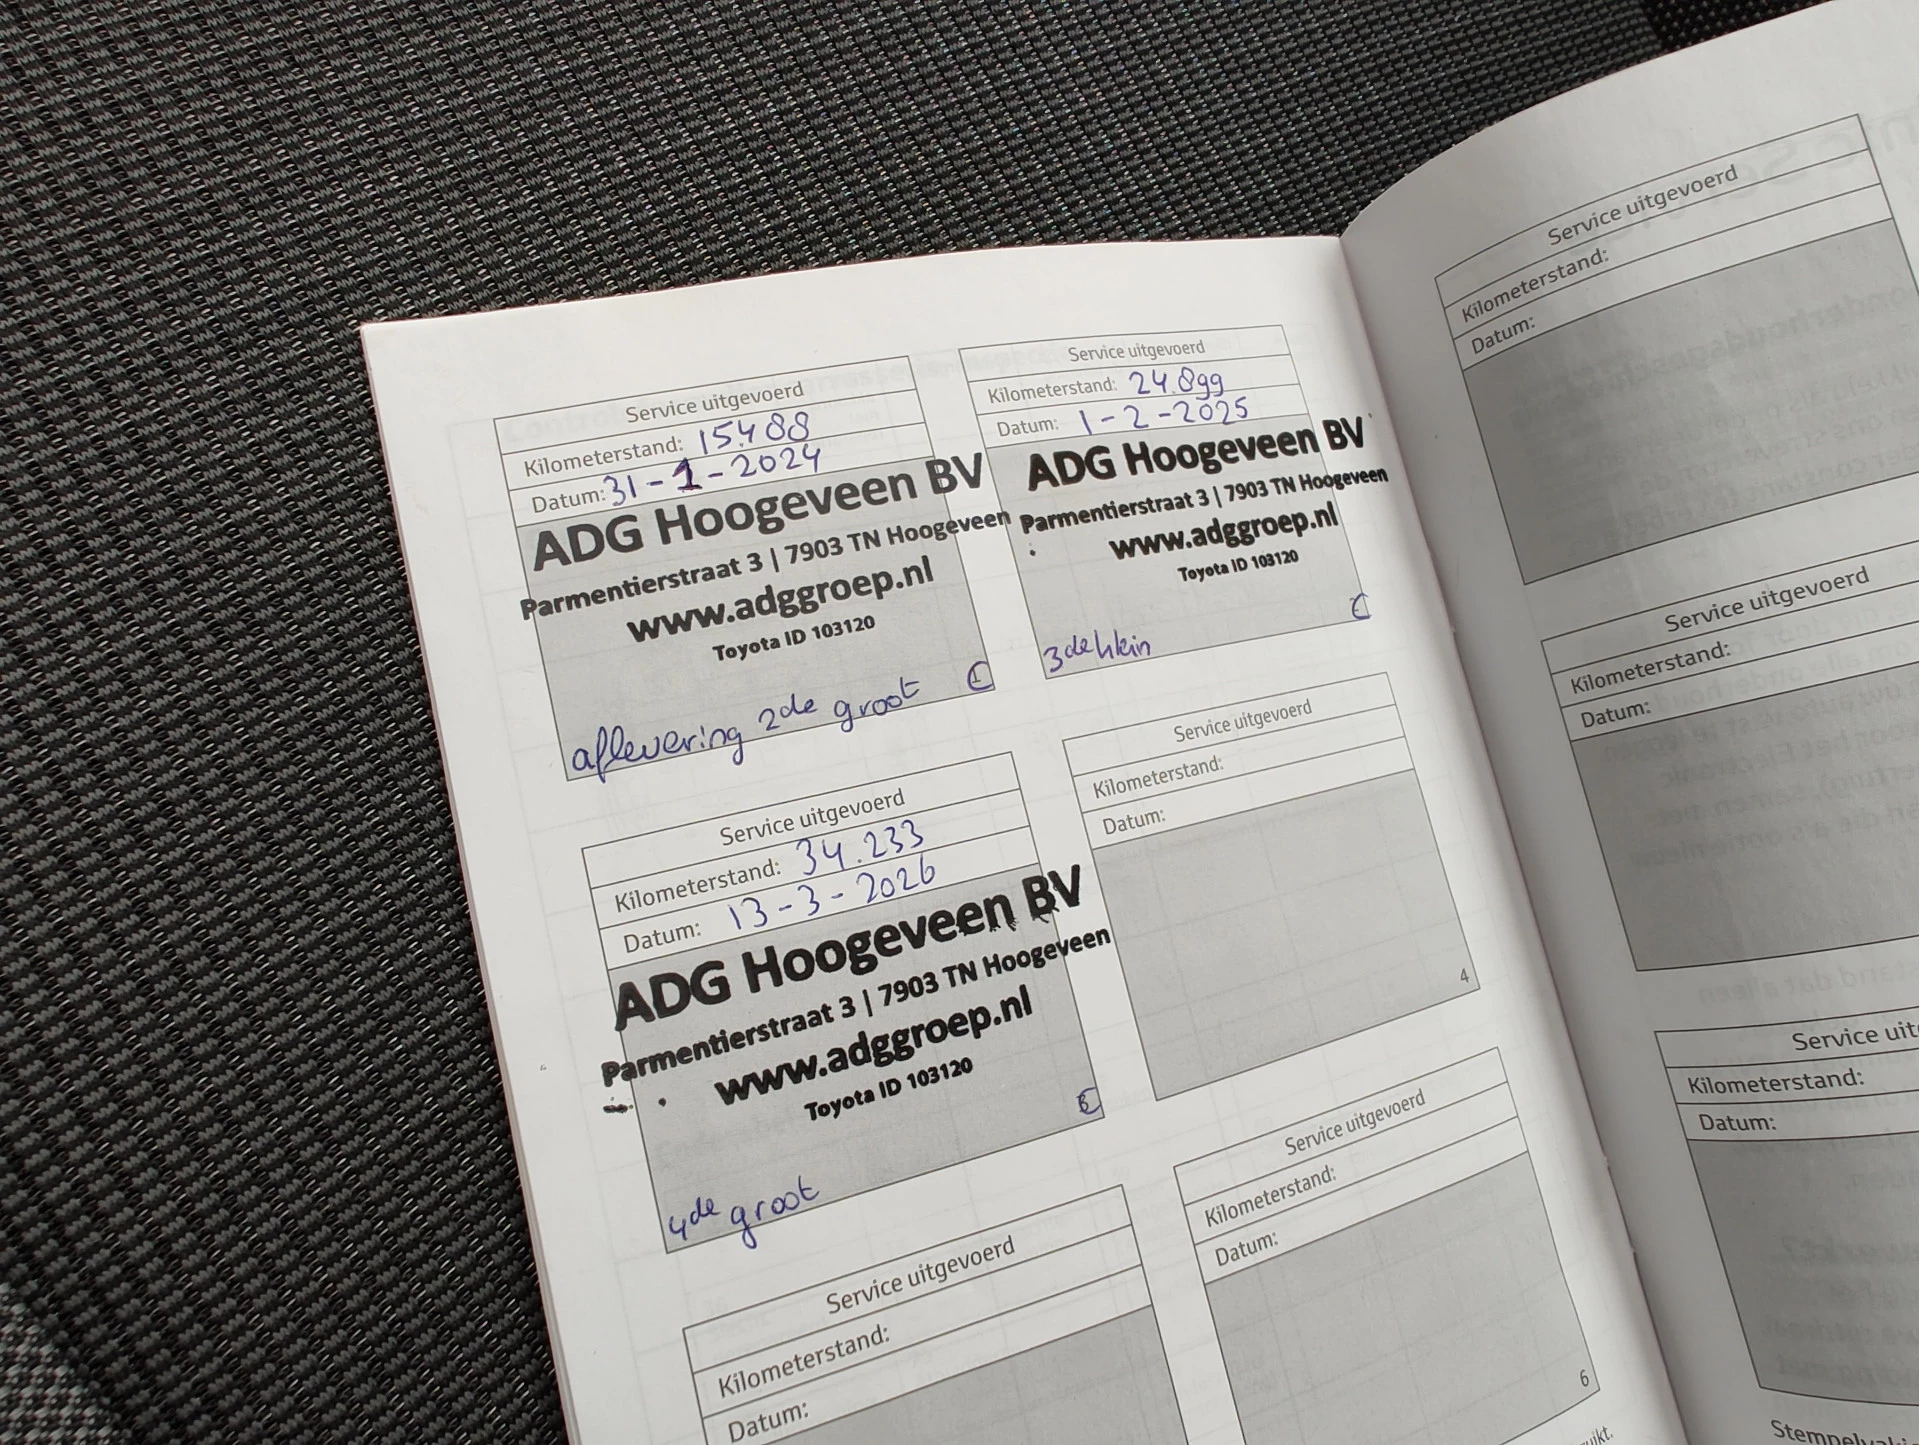 Service uitgevoerd
Kilometerstand: 15.488
Datum: 31-1-2024
ADG Hoogeveen BV
Parmentierstraat 3 | 7903 TN Hoogeveen
www.adggroep.nl
Toyota ID 103120
aflevering 2de groot
Service uitgevoerd
Kilometerstand: 24.899
Datum: 1-2-2025
ADG Hoogeveen BV
Parmentierstraat 3 | 7903 TN Hoogeveen
www.adggroep.nl
Toyota ID 103120
3de klein
Service uitgevoerd
Kilometerstand: 34.233
Datum: 13-3-2026
ADG Hoogeveen BV
Parmentierstraat 3 | 7903 TN Hoogeveen
www.adggroep.nl
Toyota ID 103120
4de groot
Service uitgevoerd
Kilometerstand:
Datum:
4
Service uitgevoerd
Kilometerstand:
Datum:
Service uitgevoerd
Kilometerstand:
Datum:
6
Service uitgevoerd
Kilometerstand:
Datum:
Service uitgevoerd
Kilometerstand:
Datum:
Service uit
Kilometerstand:
Datum: